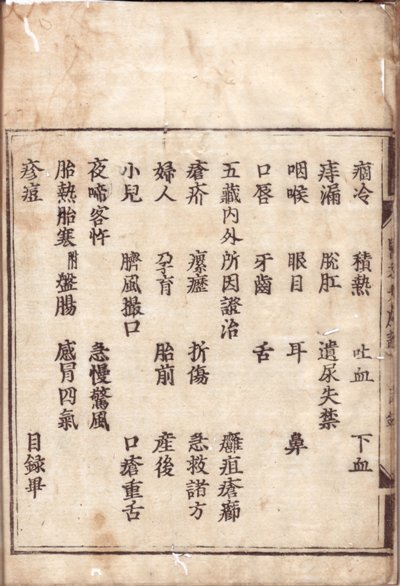 痼冷 積熱 吐血 下血
痔漏 脫肛 遺尿失禁
咽喉 眼目 耳 鼻
口唇 牙齒 舌
五藏内外所因證治 癰疽瘡癤
瘡疥 瘰癧 折傷 急救諸方
婦人 孕育 胎前 產後
小兒 臍風撮口 口瘡重舌
夜啼客忤 急慢驚風
胎熱胎寒附盤腸 感冒四氣
疹痘 目録畢